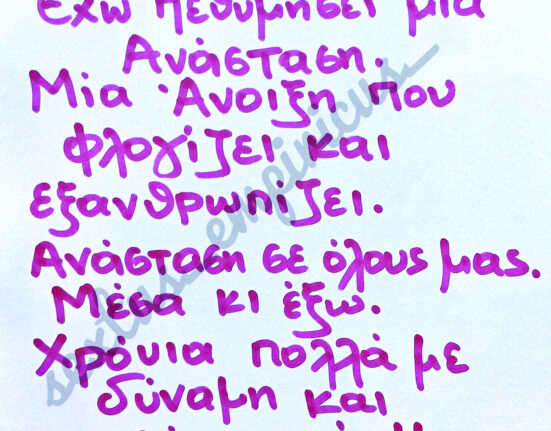 Έχω πεθυμήσει μια
Ανάσταση.
Μία Άνοιξη που
φλογίζει και
εξανθρωπίζει.
Ανάσταση σε όλους μας.
Μέσα κι έξω.
Χρόνια πολλά με
δύναμη και
sixtus_empiricus_